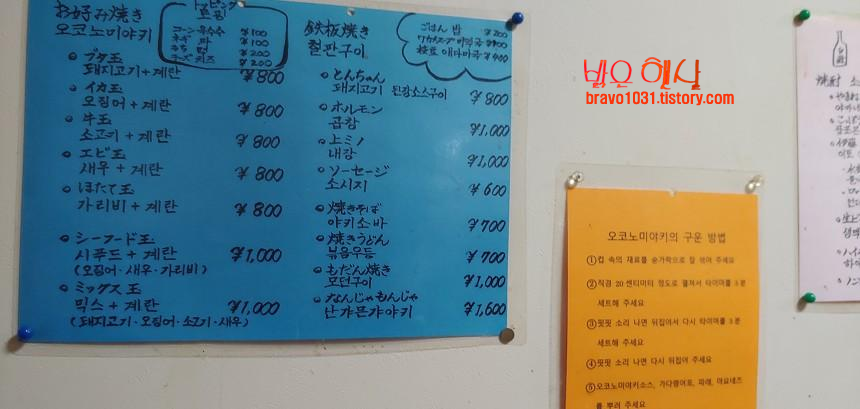 お好み焼き
오코노미야키
トッピング
토핑
コーン 옥수수 ¥100
ネギ 파 ¥100
もち 떡 ¥200
チーズ 치즈 ¥200
ブタ玉
돼지고기+계란 ¥800
イカ玉
오징어+계란 ¥800
牛玉
소고기+계란 ¥800
エビ玉
새우+계란 ¥800
ほたて玉
가리비+계란 ¥800
シーフード玉
시푸드+계란 ¥1,000
(오징어·새우·가리비)
ミックス玉
믹스+계란 ¥1,000
(돼지고기·오징어·소고기·새우)
鉄板焼き
철판구이
ごはん 밥 ¥200
ワカメスープ 미역국
枝豆 에다마메 ¥400
とんちゃん
돼지고기 된장소스구이 ¥800
ホルモン
곱창 ¥1,000
上ミノ
내장 ¥1,000
ソーセージ
소시지 ¥600
焼きそば
야키소바 ¥700
焼きうどん
볶음우동 ¥700
もだん焼き
모던구이 ¥1,000
なんじゃもんじゃ
난쟈몬쟈야키 ¥1,600
bravo1031.tistory.com
오코노미야키의 구운 방법
①컵 속의 재료를 숟가락으로 잘 섞어 주세요
②직경 20센티미터 정도로 펼쳐서 타이머를 5분
세트해 주세요
③핏핏 소리 나면 뒤집어서 다시 타이머를 5분
세트해 주세요
④핏핏 소리 나면 다시 뒤집어 주세요
⑤오코노미야키소스, 가다랑어포, 파래, 마요네즈
를 뿌려 주세요
焼酎